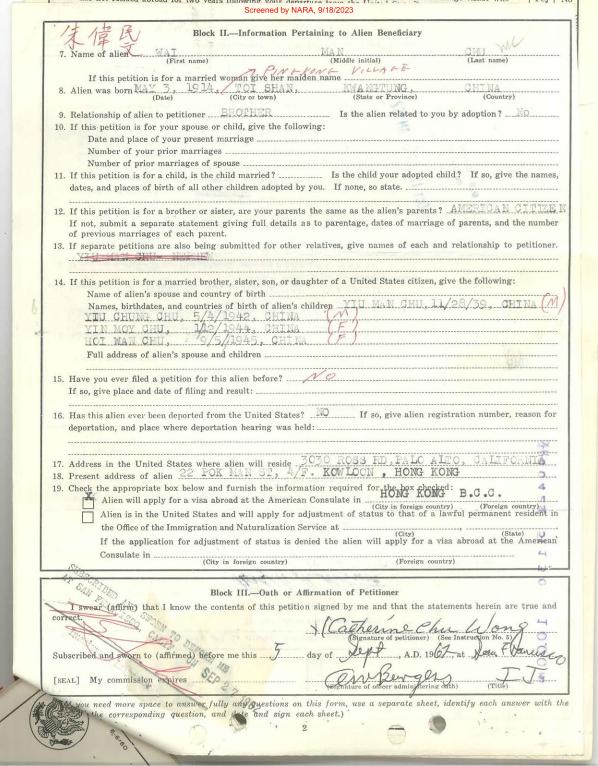 Screened by NARA, 9/18/2023
Block II.—Information Pertaining to Alien Beneficiary
朱偉民
7. Name of alien WAI MAN CHU
(First name) (Middle initial) (Last name)
PING KONG VILLAGE
If this petition is for a married woman give her maiden name
8. Alien was born MAY 3, 1914, TOI SHAN, KWANGTUNG, CHINA
(Date) (City or town) (State or Province) (Country)
9. Relationship of alien to petitioner BROTHER Is the alien related to you by adoption? No
10. If this petition is for your spouse or child, give the following:
Date and place of your present marriage
Number of your prior marriages
Number of prior marriages of spouse
11. If this petition is for a child, is the child married? Is the child your adopted child? If so, give the names,
dates, and places of birth of all other children adopted by you. If none, so state.
12. If this petition is for a brother or sister, are your parents the same as the alien's parents? AMERICAN CITIZEN
If not, submit a separate statement giving full details as to parentage, dates of marriage of parents, and the number
of previous marriages of each parent.
13. If separate petitions are also being submitted for other relatives, give names of each and relationship to petitioner.
14. If this petition is for a married brother, sister, son, or daughter of a United States citizen, give the following:
Name of alien's spouse and country of birth
Names, birthdates, and countries of birth of alien's children YIU MAN CHU, 11/28/39, CHINA (M)
YIU CHUNG CHU, 5/4/1942, CHINA (M)
YIN MOY CHU, 1/12/1944, CHINA (F)
HOI WAN CHU, 9/5/1945, CHINA (F)
Full address of alien's spouse and children
15. Have you ever filed a petition for this alien before? NO
If so, give place and date of filing and result:
16. Has this alien ever been deported from the United States? NO If so, give alien registration number, reason for
deportation, and place where deportation hearing was held:
17. Address in the United States where alien will reside 3030 ROSS RD, PALO ALTO, CALIFORNIA
18. Present address of alien 22 POK MAN ST, 4/F. KOWLOON, HONG KONG
19. Check the appropriate box below and furnish the information required for the box checked:
X Alien will apply for a visa abroad at the American Consulate in HONG KONG B.C.C.
(City in foreign country) (Foreign country)
Alien is in the United States and will apply for adjustment of status to that of a lawful permanent resident in
the Office of the Immigration and Naturalization Service at
(City) (State)
If the application for adjustment of status is denied the alien will apply for a visa abroad at the American
Consulate in
(City in foreign country) (Foreign country)
Block III.—Oath or Affirmation of Petitioner
I swear (affirm) that I know the contents of this petition signed by me and that the statements herein are true and
correct.
X Catherine Chu Wong
(Signature of petitioner) (See Instruction No. 5)
SUBSCRIBED AND SWORN TO BEFORE ME
AT SAN FRANCISCO, CALIF. ON SEP 27
Subscribed and sworn to (affirmed) before me this 5 day of Sept A.D. 1967 at San Francisco
[SEAL] My commission expires
(Signature of officer administering oath) (Title)
you need more space to answer fully any questions on this form, use a separate sheet, identify each answer with the
the corresponding question, and date and sign each sheet.)
2